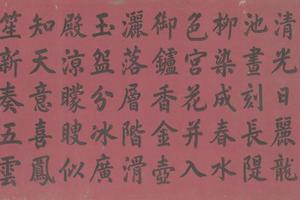 清光日麗龍
池晝刻長隄
柳染成春水
色宮花并入
御鑪香金壺
灑落層階滑
玉盌分冰廣
殿涼矇瞍似
知天意喜鳳
笙新奏五雲